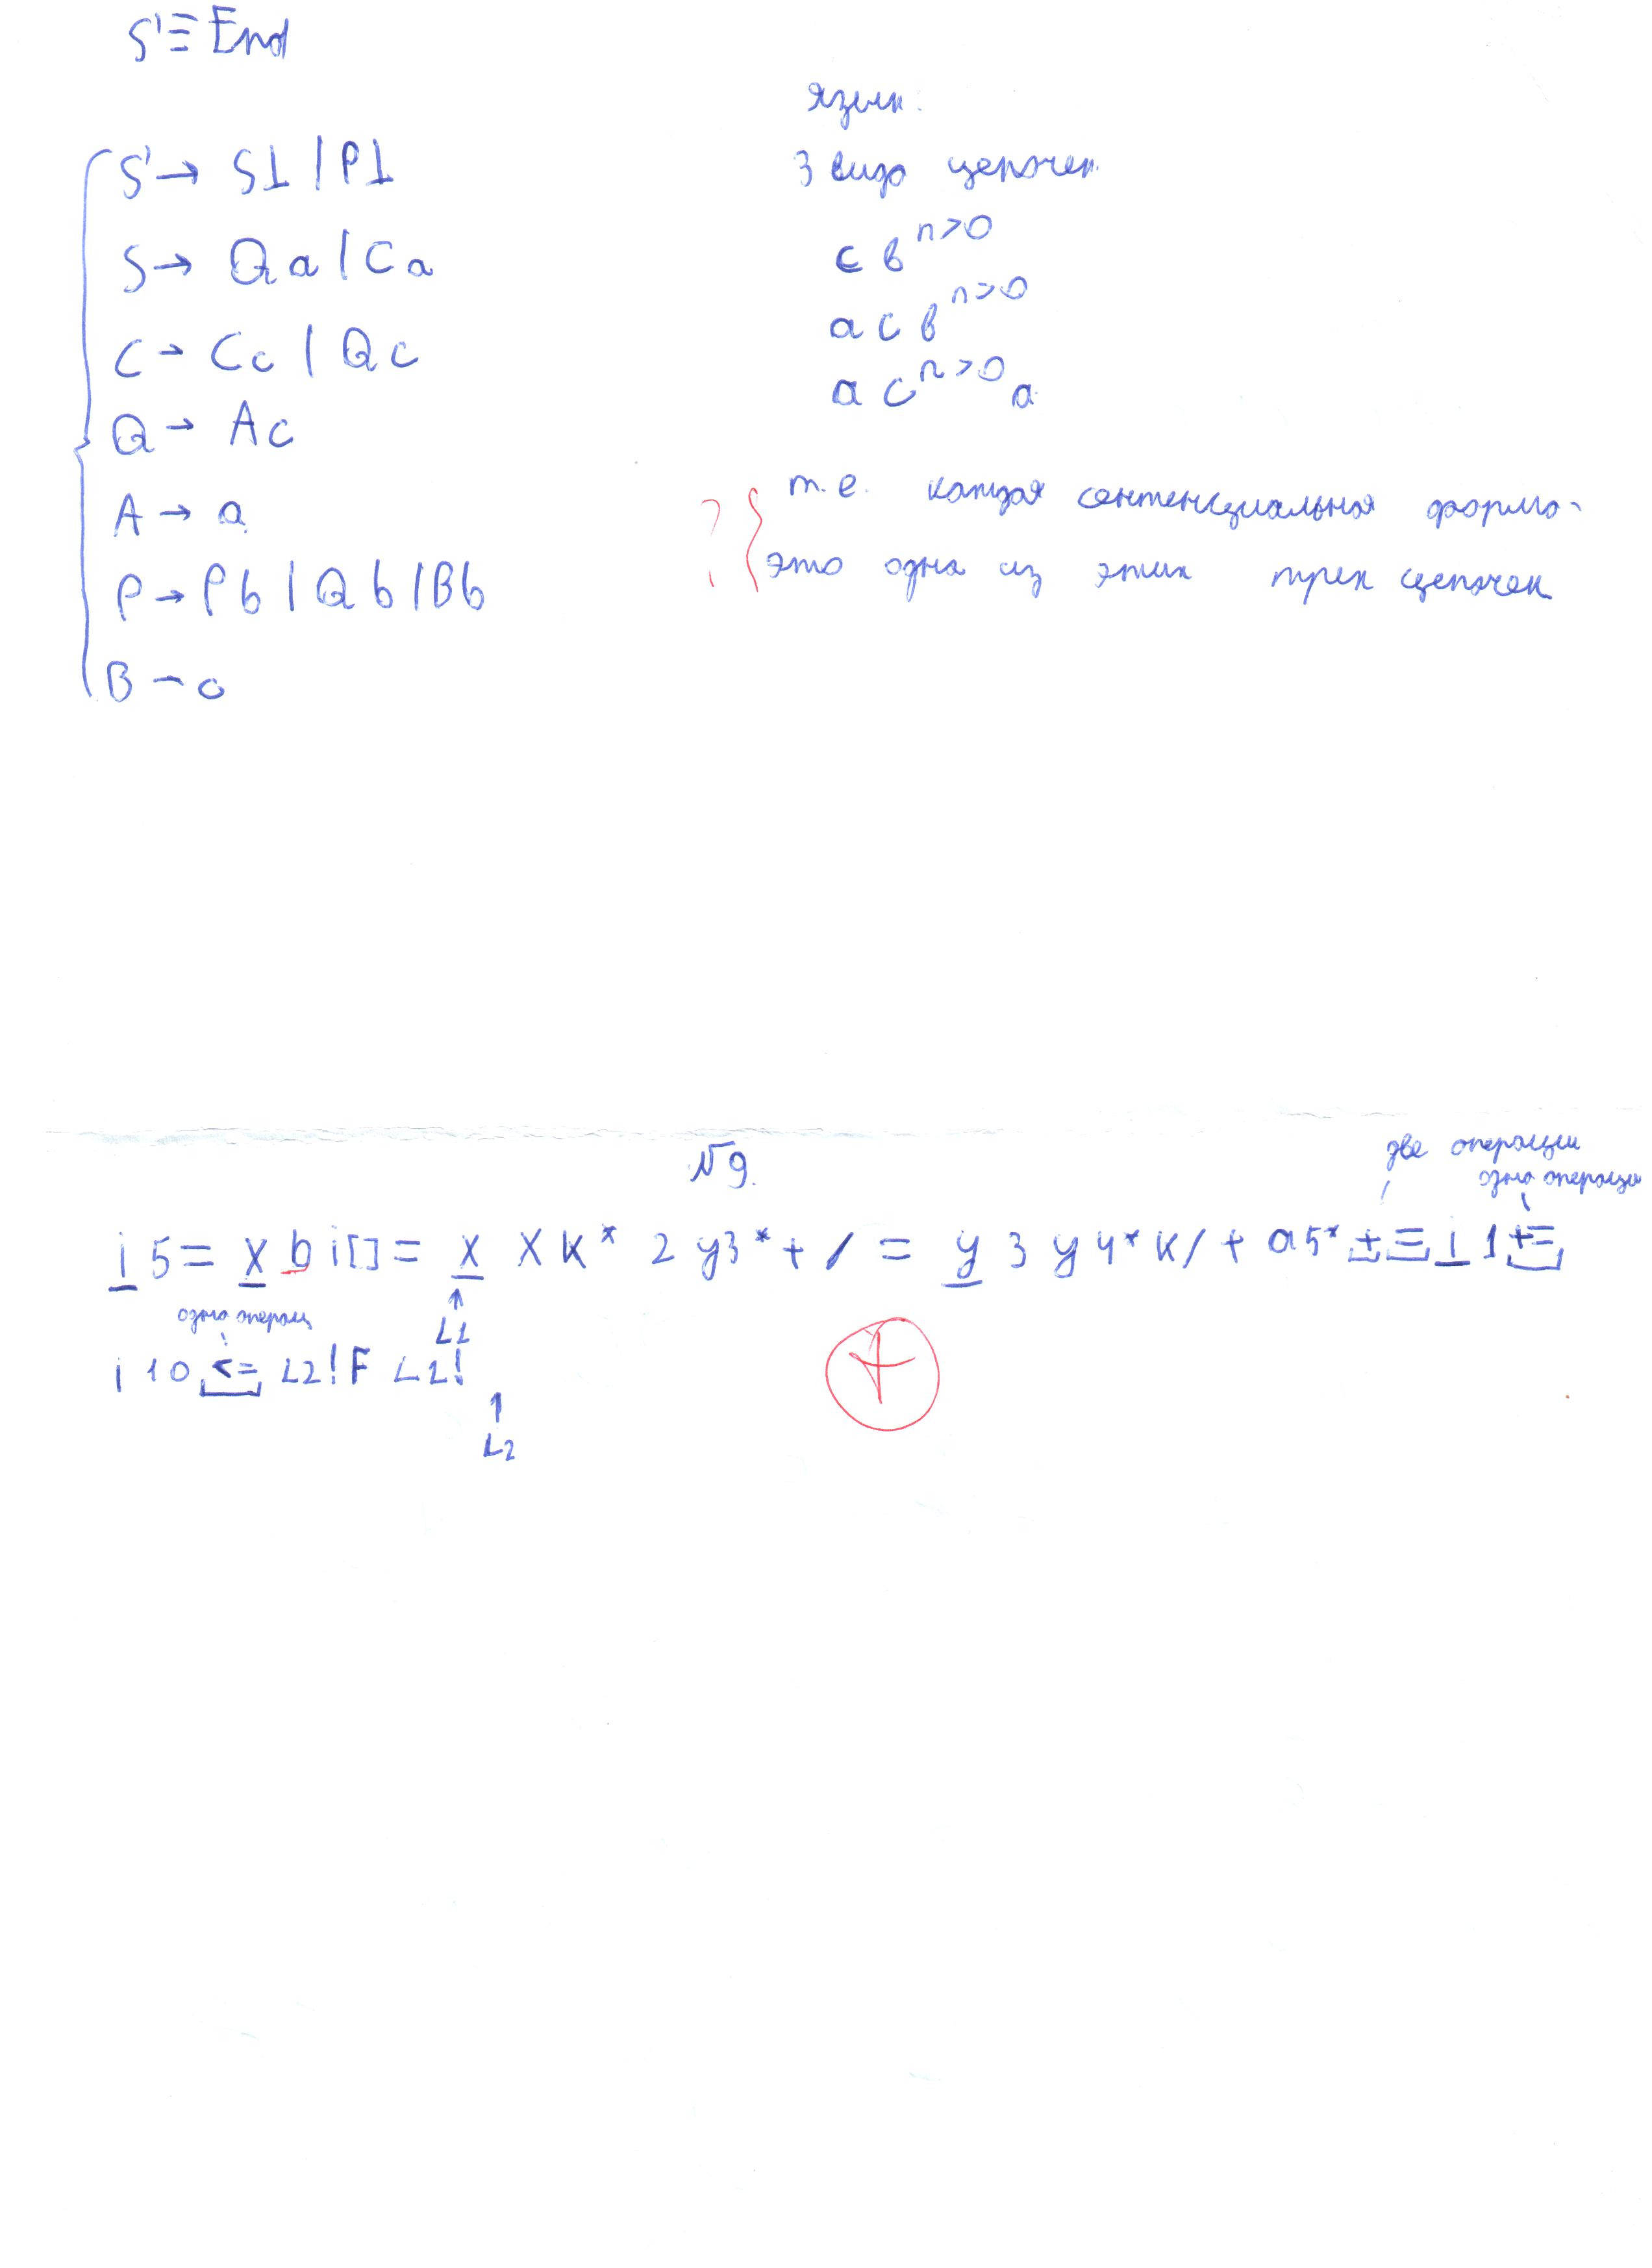 S' ≡ End
S' → S⊥ | P⊥
S → Qa | Ca
C → Cc | Qc
Q → Ac
A → a
P → Pb | Qb | Bb
B → c
Язык:
3 вида цепочек
c b^n>0
a c b^n>0
a c^n>0 a
? { т.е. каждая сентенциальная форма -
это одна из этих трех цепочек
№9.
две операции
одна операция
i 5 = x b i[] = x x k * 2 y 3 * + / = y 3 y 4 * k / + a 5 * + = i 1 +=
одна операц
L1
i 10 <= L2 ! F L1 !
L2
+